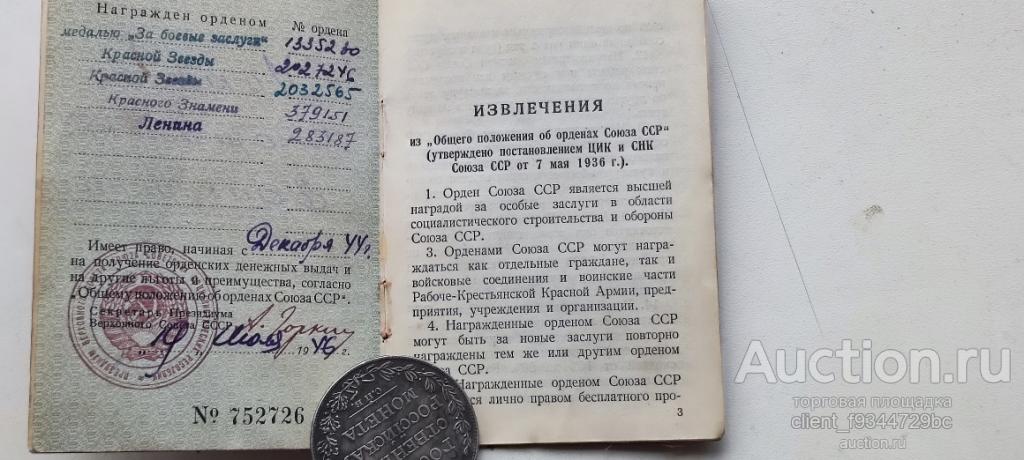 Награжден орденом
№ ордена
медалью „За боевые заслуги“ 1335280
Красной Звезды 2027246
Красной Звезды 2032565
Красного Знамени 379151
Ленина 283187
Имеет право, начиная с Декабря 44г.
на получение орденских денежных выдач и
на другие льготы и преимущества, согласно
„Общему положению об орденах Союза ССР“.
Секретарь Президиума
Верховного Совета СССР А. Горкин
1946 г.
№ 752726
ИЗВЛЕЧЕНИЯ
из „Общего положения об орденах Союза ССР“
(утверждено постановлением ЦИК и СНК
Союза ССР от 7 мая 1936 г.).
1. Орден Союза ССР является высшей
наградой за особые заслуги в области
социалистического строительства и обороны
Союза ССР.
3. Орденами Союза ССР могут награ-
ждаться как отдельные граждане, так и
войсковые соединения и воинские части
Рабоче-Крестьянской Красной Армии, пред-
приятия, учреждения и организации.
4. Награжденные орденом Союза ССР
могут быть за новые заслуги повторно
награждены тем же или другим орденом
Союза ССР.
Награжденные орденом Союза ССР
лично правом бесплатного про-
3
МОНЕТА
РОССІЙСКА
Auction.ru
торговая площадка
client_f9344729bc
auction.ru